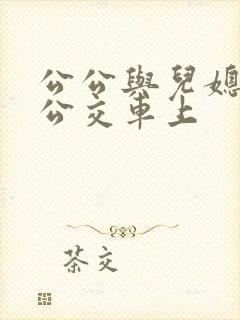 公公與兒媳
公交車上
茶交